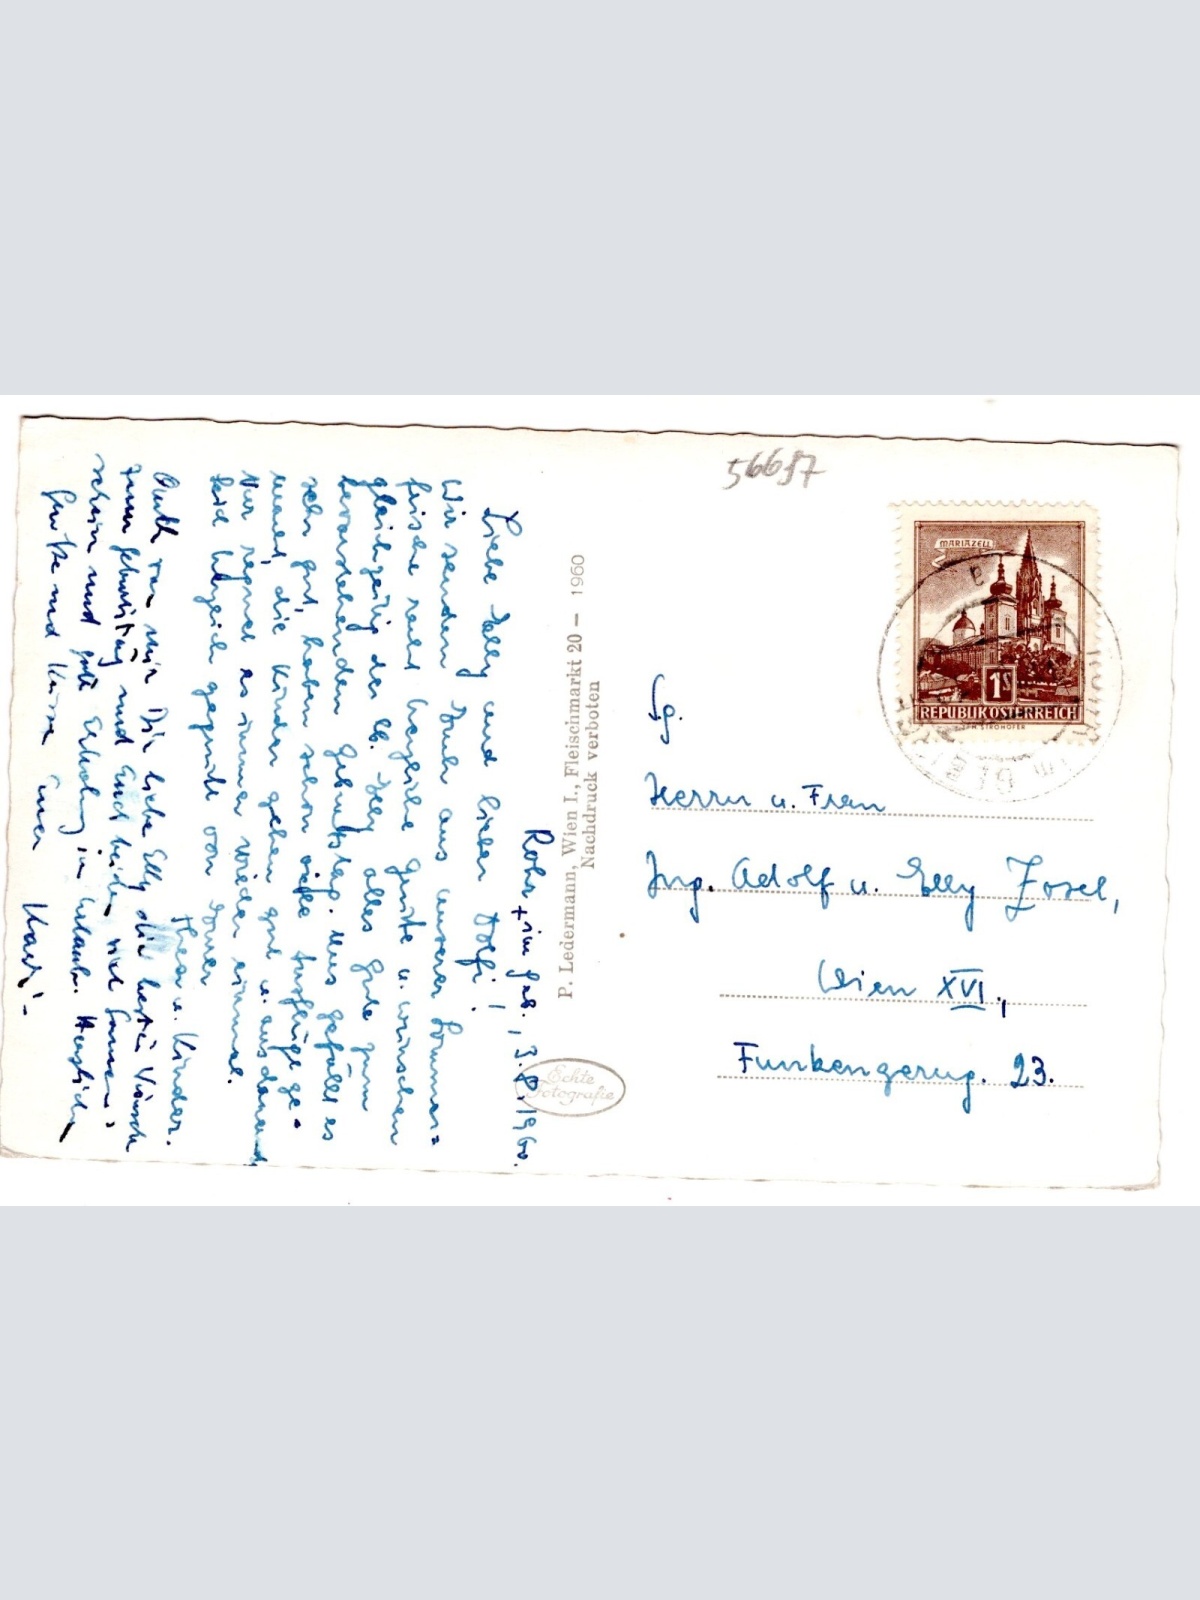 Rohr im Geb., 3.8.1960.
Liebe Elly und lieber Dolfi!
Wir senden Euch aus unserer Sommer=
frische recht herzliche Grüße u. wünschen
gleichzeitig der lb. Elly alles Gute zum
bevorstehenden Geburtstag. Uns gefällt es
sehr gut, haben schon einige Ausflüge ge=
macht, die Kinder gehen gut u. ausdauernd
Nur regnet es immer wieder einmal.
Seid herzlich gegrüßt von Eurer
Thea u. Kinder.
Auch von mir Dir liebe Elly die besten Wünsche
zum Geburtstag und Euch beiden viel Sonnen=
schein und gute Erholung im Urlaub. Herzliche
Grüße und Küsse Euer
P. Ledermann, Wien I., Fleischmarkt 20 – 1960
Nachdruck verboten
Echte
Fotografie
56687
MARIAZELL
1S
REPUBLIK ÖSTERREICH
Fg.
Herrn u. Frau
Ing. Adolf u. Elly Zosel,
Wien XVI.,
Funkengerng. 23.